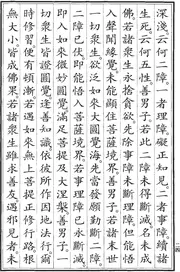 深淺云何二障一者理障礙正知見二者事障續諸
生死云何五性善男子若此二障未得斷滅名未成
佛若諸眾生永捨貪欲先除事障未斷理障但能悟
入聲聞緣覺未能顯住菩薩境界善男子若諸末世
一切眾生欲泛如來大圓覺海先當發願勤斷二障
二障已伏即能悟入菩薩境界若事理障已永斷滅
即入如來微妙圓覺滿足菩提及大涅槃善男子一
切眾生皆證圓覺逢善知識依彼所作因地法行爾
時修習便有頓漸若遇如來無上菩提正修行路根
無大小皆成佛果若諸眾生雖求善友遇邪見者未